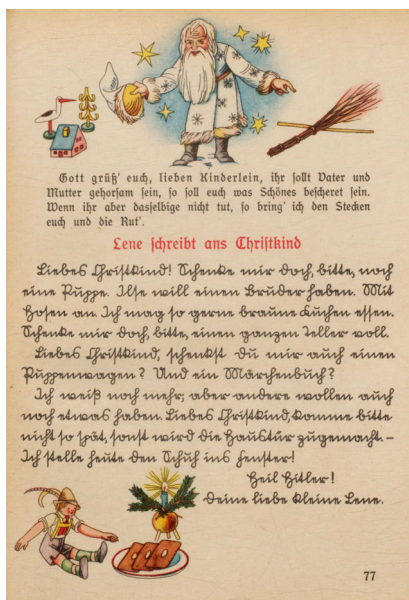 Gott grüß' euch, lieben Kinderlein, ihr sollt Vater und
Mutter gehorsam sein, so soll euch was Schönes bescheret sein.
Wenn ihr aber dasselbige nicht tut, so bring' ich den Stecken
euch und die Rut'.
Lene schreibt ans Christkind
Liebes Christkind! Schenke mir doch, bitte, noch
eine Puppe. Ilse will einen Bruder haben. Mit
Hosen an. Ich mag so gerne braune Kuchen essen.
Schenke mir doch, bitte, einen ganzen Teller voll.
Liebes Christkind, schenkst du mir auch einen
Puppenwagen? Und ein Märchenbuch?
Ich weiß noch mehr, aber andere wollen auch
noch etwas haben. Liebes Christkind, komme bitte
nicht so spät, sonst wird die Haustür zugemacht. –
Ich stelle heute den Schuh ins Fenster!
Heil Hitler!
Deine liebe kleine Lene.
77